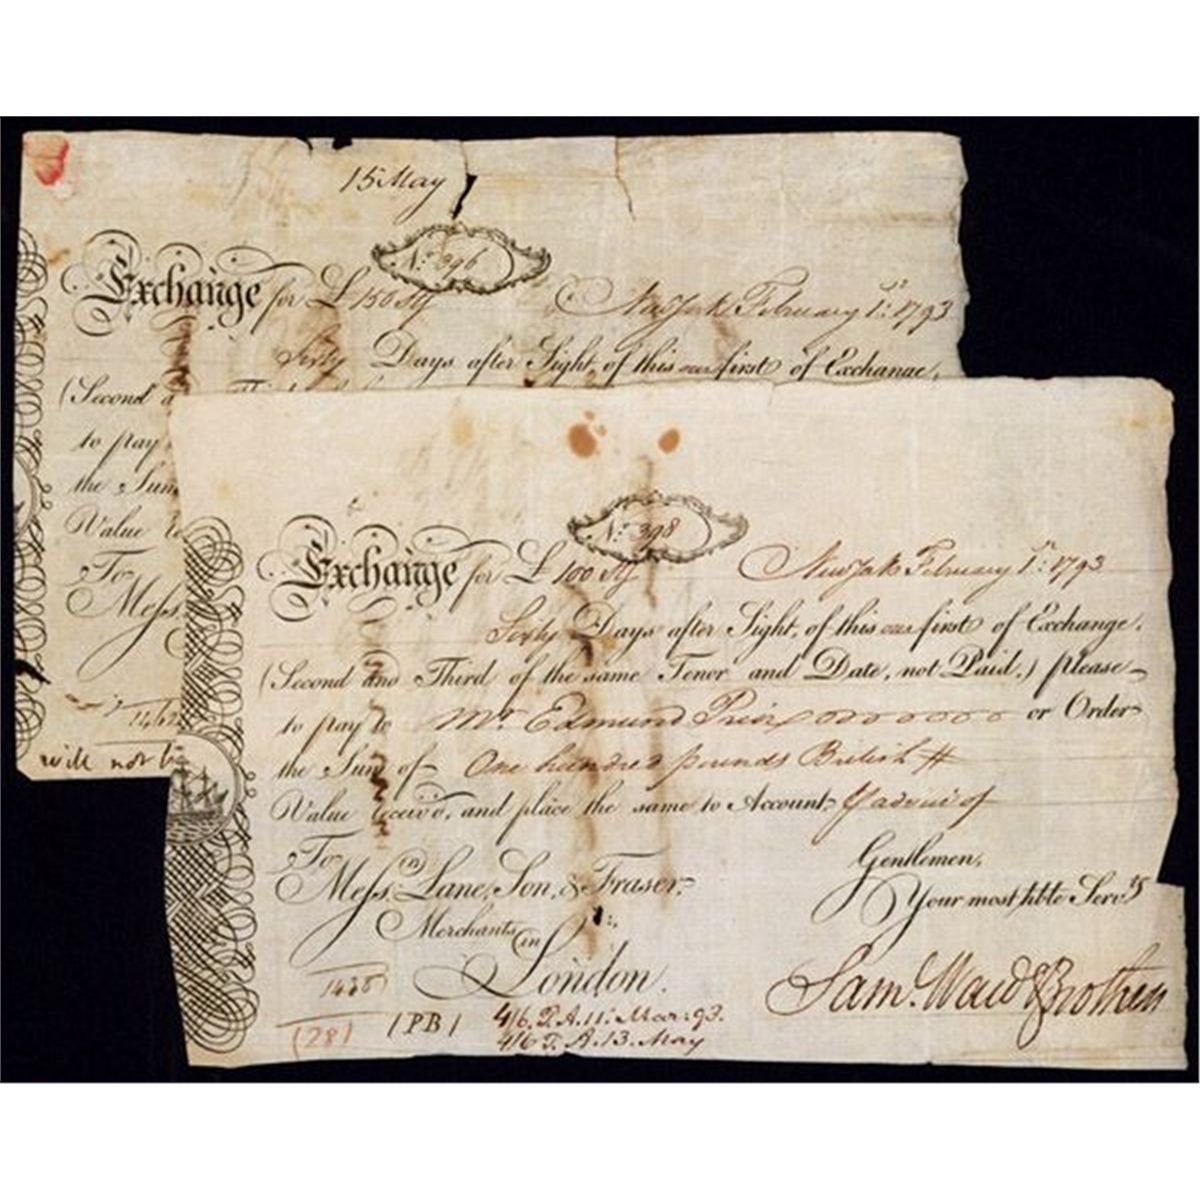 15 May
No. 396
Exchange for £ 150 Stg New York February 1st: 1793
Sixty Days after Sight, of this our first of Exchange,
(Second a
to pay
the Sum
Value
To
Mess
146
will not b
No. 398
Exchange for £ 100 Stg New York February 1st: 1793
Sixty Days after Sight, of this our first of Exchange.
(Second and Third of the same Tenor and Date, not Paid,) please
to pay to Mr. Edmund or Order
the Sum of One hundred pounds British
Value receiv'd, and place the same to Account,
To Gentlemen,
Messrs. Lane, Son, & Fraser, Your most hble Servts
Merchants in
London. Saml. Ward & Brothers
1438
(78) (PB) 4/6. P.A. 11. Mar: 93.
4/6 T. A. 13. May